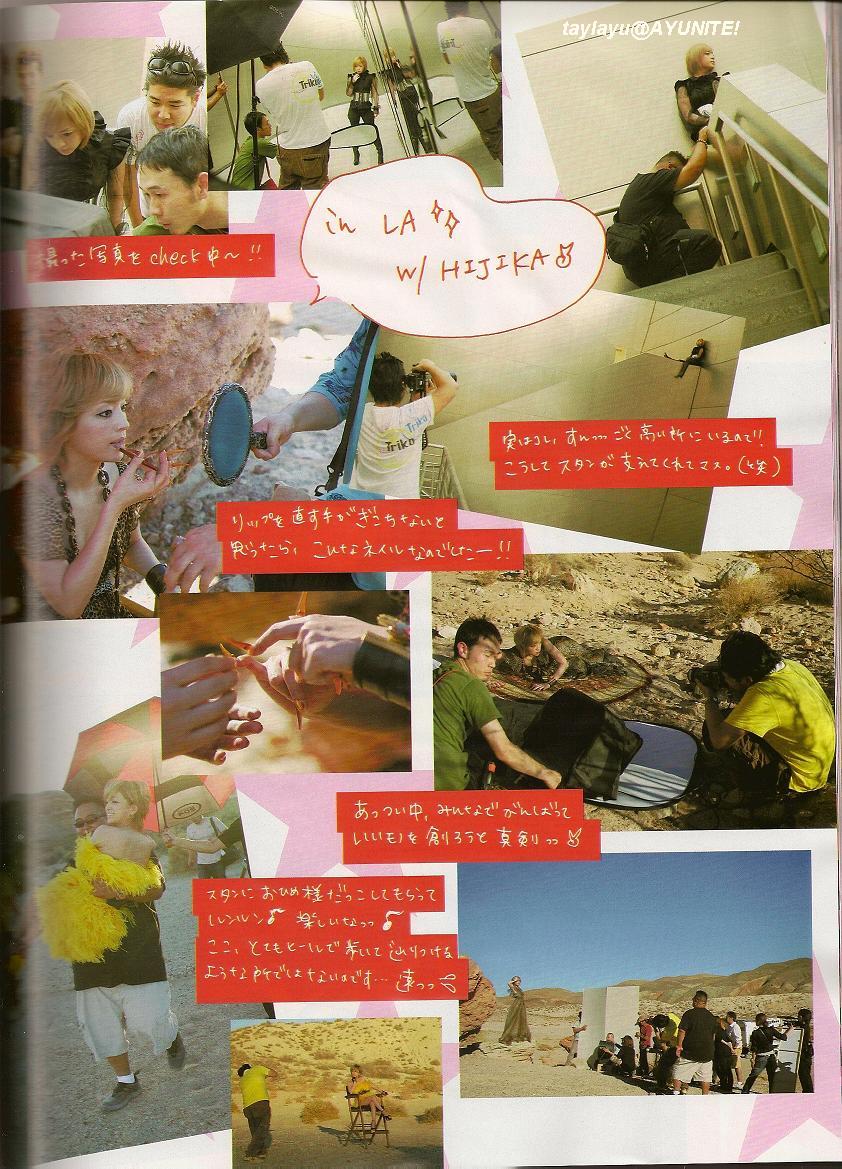 taylayu@AYUNITE!
Triko
in LA
w/ HIJIKA
撮った写真を check 中〜!!
実はコレ、すんっっごく高い所にいるので!!
こうしてスタンが支えてくれてマス。(笑)
Triko
Triko
リップを直す手がぎこちないと
思ったら、こんなネイルなのでしたー!!
あっつい中、みんなでがんばって
いいモノを創ろうと真剣っっ
スタンにおひめ様だっこしてもらって
ルンルン♪ 楽しいなっっ♪
ここ、とてもヒールで歩いて辿りつける
ような所ではないのです… 遠っっ